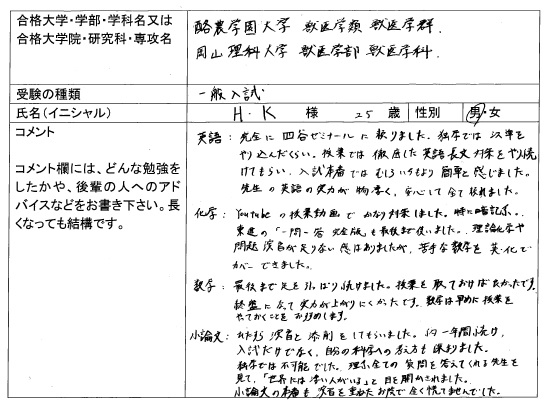 合格大学・学部・学科名又は
合格大学院・研究科・専攻名
酪農学園大学 獣医学類 獣医学群.
岡山理科大学 獣医学部 獣医学科.
受験の種類 一般入試
氏名(イニシャル) H・K 様 25 歳 性別 男・女
コメント
コメント欄には、どんな勉強を
したかや、後輩の人へのアド
バイスなどをお書き下さい。長
くなっても結構です。
英語: 完全に四谷ゼミナールに頼りました。独学では
やり込んだくらい。授業では徹底した英語長文対策をやり続
けてもらい、入試本番ではむしろいつもより簡単と感じました。
先生の英語の実力が物凄く、安心して全て頼れました。
化学: Youtubeの授業動画でかなり対策しました。特に暗記系、
東進の「一問一答 完全版」も最後まで使いました。理論化学や
問題演習が足りない感はありましたが、苦手な数学を英・化で
カバーできました。
数学: 最後まで足を引っぱり続けました。授業を取っておけばよかったです。
終盤になって実力が上がりにくかったです。数学は早めに授業を
やっておくことをお勧めします。
小論文: ひたすら演習と添削をしてもらいました。約一年間続け、
入試だけでなく、自分の科学への考え方も深まりました。
独学では不可能でした。理系全ての質問を答えてくれる先生を
見て、「世界には凄い人がいる」と目を開かされました。
小論文の本番も演習を重ねたお陰で全く慌てませんでした。